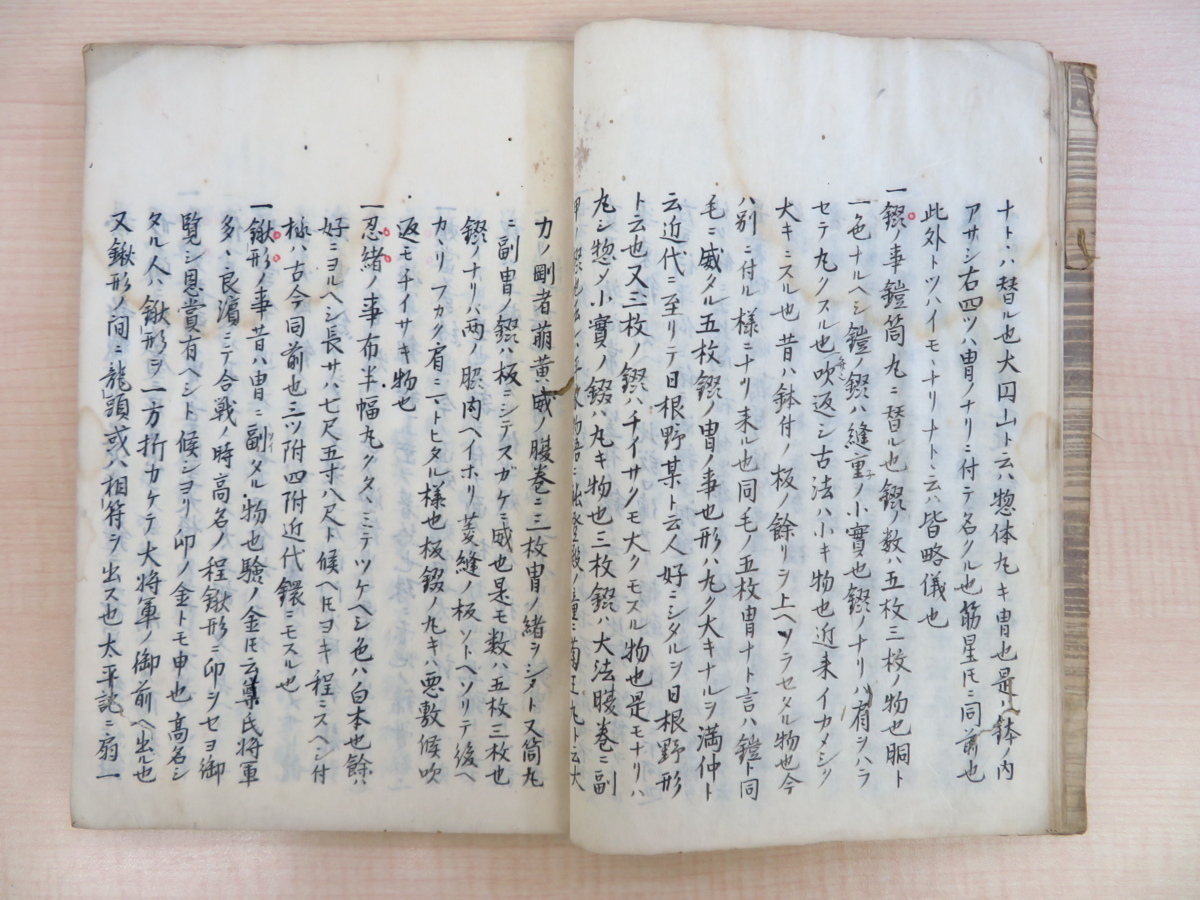 ナト、ハ替ル也大円山ト云ハ惣体丸キ冑也是ハ鉢ノ内
アサシ右四ツハ冑ノナリニ付テ名クル也筋星氏ニ同前也
此外トツハイモ、ナリナト、云ハ皆略儀也
一錣ノ事鎧筒丸ニ替ル也錣ノ数ハ五枚三枚ノ物也胴ト
一色ナルヘシ鎧ノ錣ハ縫重ノ小實也錣ノナリハ有ヲハラ
セテ丸クスル也吹返シ古法ハ小キ物也近来イカメシク
大キニスル也昔ハ鉢付ノ板ノ餘リヲ上ヘソラセタル物也今
ハ別ニ付ル様ニナリ来ル也同毛ノ五枚冑ナト言ハ鎧ト同
毛ニ威タル五枚錣ノ冑ノ事也形ハ丸ク大キナルヲ満仲ト
云近代ニ至リテ日根野某ト云人好ニシタルヲ日根野形
ト云也又三枚ノ錣ハチイサクモ大クモスル物也是モナリハ
丸シ惣メ小實ノ錣ハ丸キ物也三枚錣ハ大法腹巻ニ副
菊王丸ト云大
力ノ剛者萠黄威ノ腹巻ニ三枚冑ノ緒ヲシメト又筒丸
ニ副冑ノ錣ハ板ニシテスガケニ威也是モ数ハ五枚三枚也
錣ノナリハ両ノ脇内ヘイホリ菱縫ノ板ソトヘソリテ後ヘ
カヽリフカク肩ニヽトヒタル様也板錣ノ丸キハ悪敷候吹
返モチイサキ物也
一忍緒ノ事布半幅丸クタヽミテツケヘシ色ハ白本也餘ハ
好ニヨルヘシ長サハ七尺五寸八尺ト候ヘ氏ヨキ程ニスヘシ付
様ハ古今同前也三ツ附四附近代鐶ニモスル也
一鍬形ノ事昔ハ冑ニ副タル物也験ノ金氏云尊氏将軍
多々良濱ニテ合戦ノ時高名ノ程鍬形ニ印ヲセヨ御
覧シ恩賞有ヘシト候シヨリ印ノ金トモ申也高名シ
タル人ハ鍬形ヲ一方折カケテ大将軍ノ御前ヘ出ル也
又鍬形ノ間ニ龍頭或ハ相符ヲ出ス也太平記ニ扇一